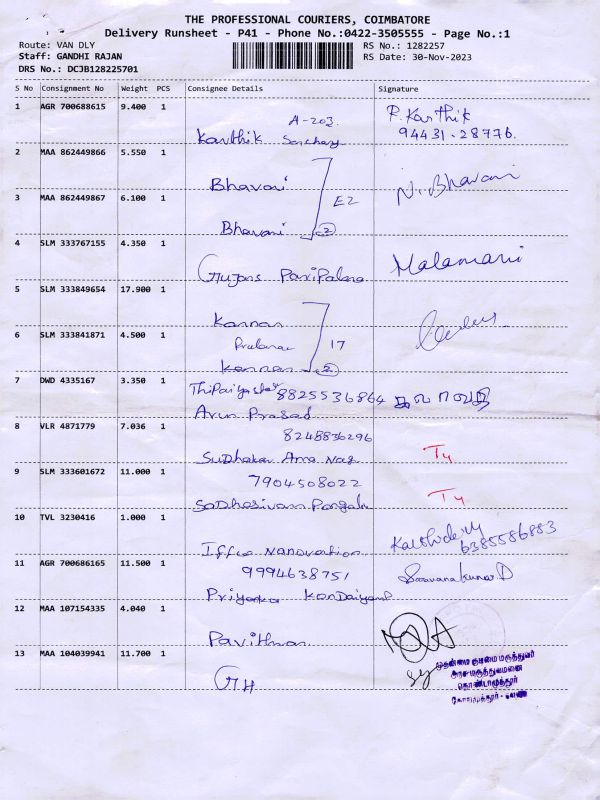 THE PROFESSIONAL COURIERS, COIMBATORE
Delivery Runsheet - P41 - Phone No.:0422-3505555 - Page No.:1
Route: VAN DLY
RS No.: 1282257
Staff: GANDHI RAJAN
RS Date: 30-Nov-2023
DRS No.: DCJB128225701
S No Consignment No Weight PCS Consignee Details Signature
1 AGR 700688615 9.400 1
A-203 R. Karthik
94431-28776.
Karthik
2 MAA 862449866 5.550 1
Bhavani E2 N. Bhavani
3 MAA 862449867 6.100 1
Bhavani 2
4 SLM 333767155 4.350 1
Malamani
5 SLM 333849654 17.900 1
Kannan
6 SLM 333841871 4.500 1
17
Kannan 2
7 DWD 4335167 3.350 1
8825536864
Arun Prasad
8 VLR 4871779 7.036 1
8248836296
Sudhakar Ama Nag T4
9 SLM 333601672 11.000 1
7904508022
Sadhasivam T4
10 TVL 3230416 1.000 1
6385586883
Iffco Nanovation
11 AGR 700686165 11.500 1
9994638751 Saravanakumar.D
Priyanka
12 MAA 107154335 4.040 1
13 MAA 104039941 11.700 1
GH
முதன்மை குடிமை மருத்துவர்
அரசு மருத்துவமனை
தொண்டாமுத்தூர்